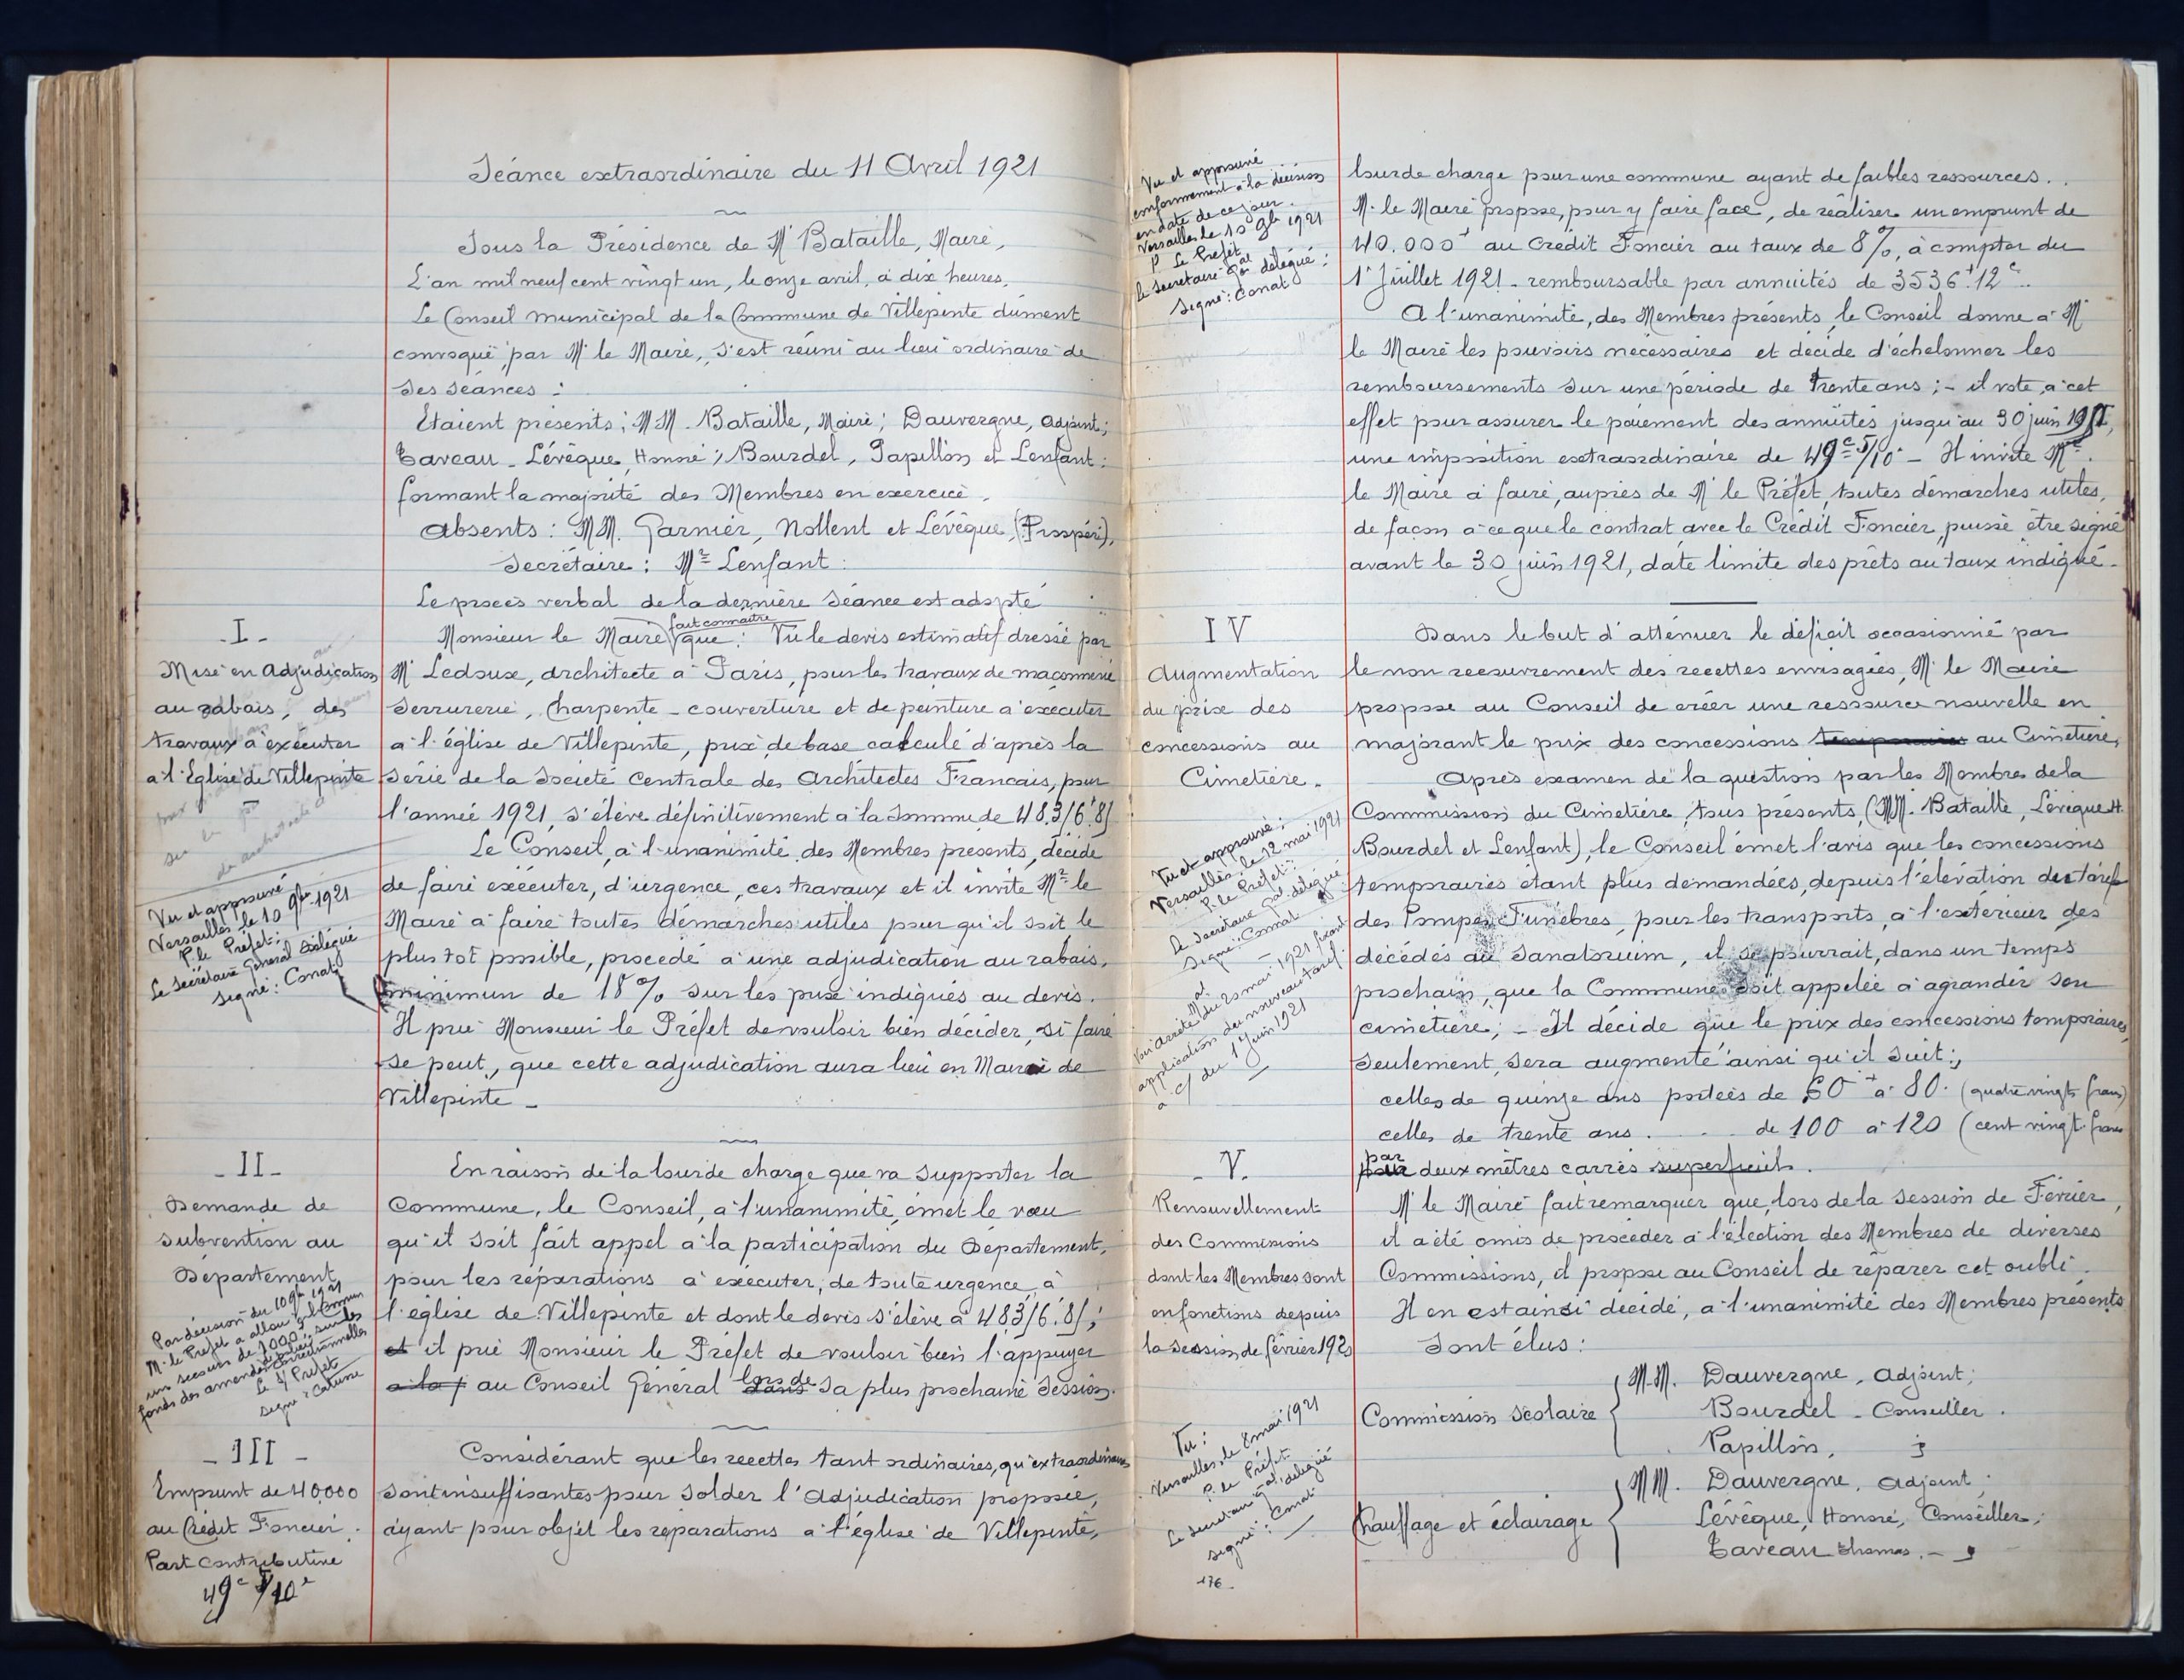 Séance extraordinaire du 11 Avril 1921
Sous la Présidence de Mr Bataille, Maire,
L'an mil neuf cent vingt un, le onze avril, à dix heures,
Le Conseil municipal de la Commune de Villepinte dûment
convoqué, par Mr le Maire, s'est réuni au lieu ordinaire de
ses séances :
Etaient présents ; M.M. Bataille, Maire ; Dauvergne, Adjoint ;
Taveau - Lévêque, Honoré ; Bourdel, Papillon et Lenfant ;
formant la majorité des Membres en exercice.
Absents : MM. Garnier, Nollent et Lévêque, (Prospéri),
Secrétaire : Mr Lenfant :
Le procès verbal de la dernière séance est adopté
- I -
Mise en Adjudication
au rabais, des
travaux à exécuter
à l'Eglise de Villepinte
Vu et approuvé
Versailles le 10 9bre 1921
P. le Préfet :
Le Secrétaire Général Délégué
Signé : Conat
Monsieur le Maire fait connaître que : Vu le devis estimatif dressé par
Mr Ledoux, architecte à Paris, pour les travaux de maçonnerie
serrurerie, charpente - couverture et de peinture à exécuter
à l'église de Villepinte, prix de base calculé d'après la
série de la Société Centrale des Architectes Francais, pour
l'année 1921, s'élève définitivement à la somme de
Le Conseil, à l'unanimité des Membres présents, décide
de faire exécuter, d'urgence, ces travaux et il invite Mr le
Maire à faire toutes démarches utiles pour qu'il soit le
plus tot possible, procédé à une adjudication au rabais,
minimun de 18 % sur les prix indiqués au devis.
Il prie Monsieur le Préfet de vouloir bien décider, si faire
se peut, que cette adjudication aura lieu en Mairie de
Villepinte -
- II -
Demande de
subvention au
Département
Par décision du 10 9bre 1921
M. le Préfet a alloué à la Commun
un secours de 1000 f sur les
fonds des amendes de police correctionnelles
Le s/ Préfet
En raison de la lourde charge que va supporter la
Commune, le Conseil, à l'unanimité, émet le vœu
qu'il soit fait appel à la participation du Département,
pour les réparations à exécuter, de toute urgence, à
l'église de Villepinte et dont le devis s'élève à
et il prie Monsieur le Préfet de vouloir bien l'appuyer
à la au Conseil Général dans lors de sa plus prochaine session.
- III -
Emprunt de 40.000
au Crédit Foncier.
Part contributive
49c 5/10e
Considérant que les recettes tant ordinaires, qu'extraordinaires
sont insuffisantes pour solder l'adjudication proposée,
ayant pour objet les réparations à l'église de Villepinte,
Vu et approuvé
conformément à la décision
en date de ce jour.
Versailles le 10 9bre 1921
P. Le Préfet
le Secrétaire Gal délégué :
Signé : Conat
lourde charge pour une commune ayant de faibles ressources.
M. le Maire propose, pour y faire face, de réaliser un emprunt de
40.000f au Crédit Foncier au taux de 8 %, à compter du
1r Juillet 1921 - remboursable par annuités de 3536f.12c
A l'unanimité, des Membres présents, le Conseil donne à Mr
le Maire les pouvoirs nécessaires et décide d'échelonner les
remboursements sur une période de trente ans ; - il vote, à cet
effet pour assurer le paiement des annuités jusqu'au 30 juin 1951,
une imposition extraordinaire de 49c 5/10e - Il invite Mr
le Maire à faire, auprès de Mr le Préfet, toutes démarches utiles,
de façon à ce que le contrat avec le Crédit Foncier, puisse être signé
avant le 30 juin 1921, date limite des prêts au taux indiqué.
IV
Augmentation
du prix des
concessions au
Cimetière.
Vu et approuvé :
Versailles, le 12 mai 1921
P. le Préfet :
Le Secrétaire Gal délégué
Signé : Conat
Voir arrêté Mal du 20 mai 1921 fixant
application du nouveau tarif
à c/ du 1r Juin 1921
Dans le but d'atténuer le déficit occasionné par
le non recouvrement des recettes envisagées, Mr le Maire
propose au Conseil de créer une ressource nouvelle en
majorant le prix des concessions temporaires au Cimetière,
Après examen de la question par les Membres de la
Commission du Cimetière, tous présents, (MM. Bataille, Lévêque H.
Bourdel et Lenfant), le Conseil émet l'avis que les concessions
temporaires étant plus demandées, depuis l'élévation des tarifs
des Pompes Funèbres, pour les transports, à l'extérieur des
décédés au Sanatorium, il se pourrait, dans un temps
prochain, que la Commune soit appelée à agrandir son
cimetière ; - Il décide que le prix des concessions temporaires,
seulement, sera augmenté ainsi qu'il suit :
celles de quinze ans portées de 60f à 80. (quatre vingts francs)
celles de trente ans . . . de 100 à 120 (cent vingt francs
pour par deux mètres carrés superficiels.
V.
Renouvellement
des Commissions
dont les Membres sont
en fonctions depuis
la session de février 1920
Vu :
Versailles, le 8 mai 1921
P. le Préfet
Le Secrétaire Gal délégué
Signé : Conat
176.
Mr le Maire fait remarquer que, lors de la session de Février,
il a été omis de procéder à l'élection des Membres de diverses
Commissions, il propose au Conseil de réparer cet oubli.
Il en est ainsi décidé, à l'unanimité des Membres présents
Sont élus :
Commission Scolaire
M.M. Dauvergne, Adjoint ;
Bourdel - Conseiller.
Papillon,
Chauffage et éclairage
MM. Dauvergne, Adjoint ;
Lévêque, Honoré, Conseiller,
Taveau Thomas. -